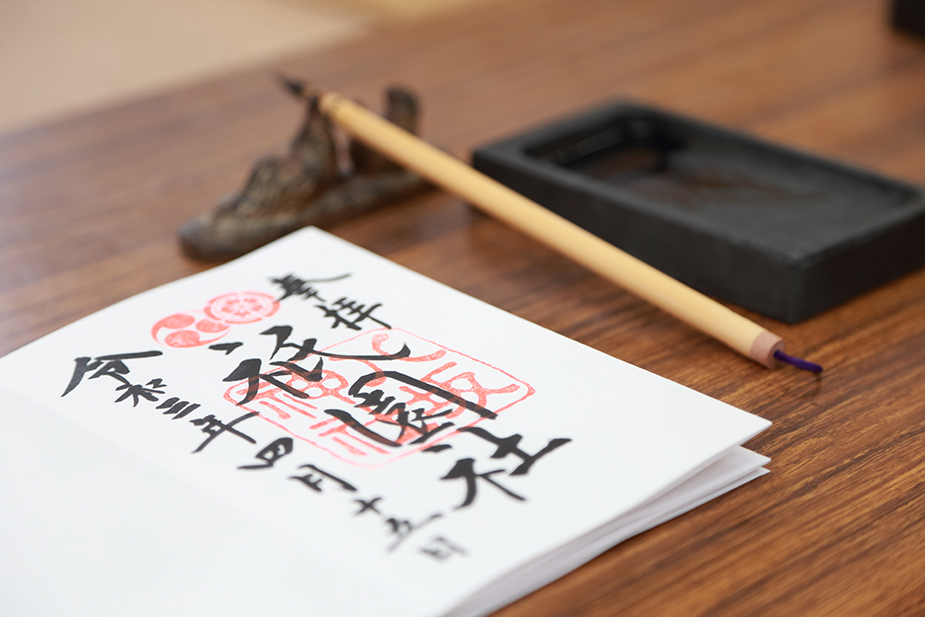 奉拝
祇園社
令和三年四月十五日
八坂
神社